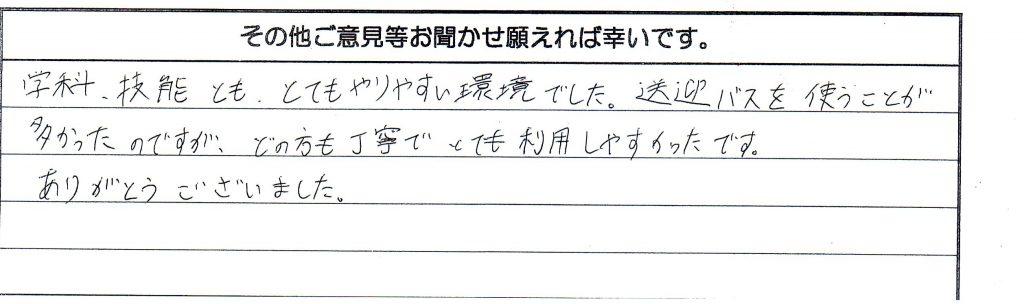 その他ご意見等お聞かせ願えれば幸いです。
学科、技能とも、とてもやりやすい環境でした。送迎バスを使うことが
多かったのですが、どの方も丁寧でとても利用しやすかったです。
ありがとうございました。